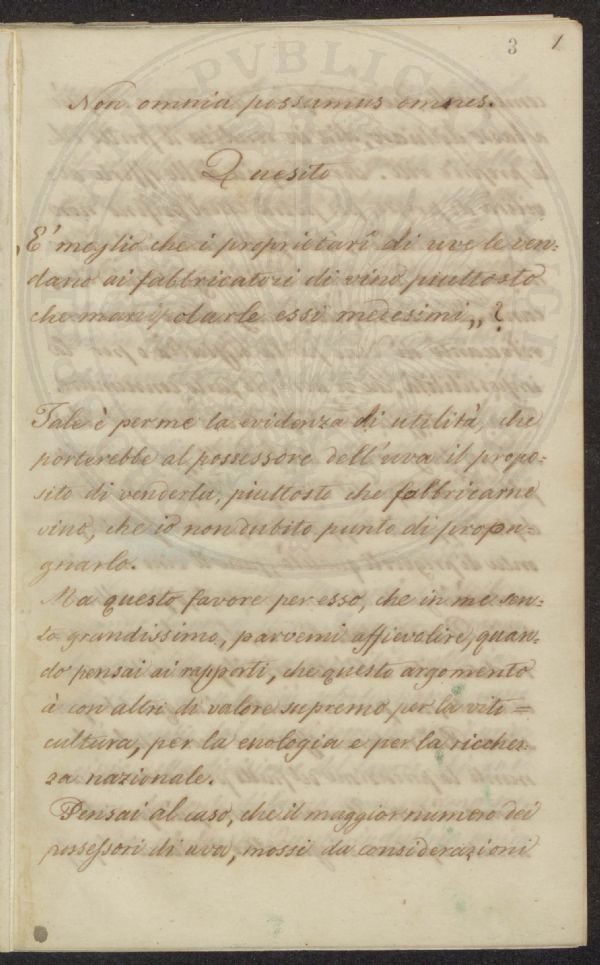 3 1
Non omnia possumus omnes.
Quesito
„E' meglio che i proprietarî di uve le ven=
dano ai fabbricatori di vino piuttosto
che manipolarle essi medesimi„?
Tale è per me la evidenza di utilità, che
porterebbe al possessore dell'uva il propo=
sito di venderla, piuttosto che fabbricarne
vino, che io non dubito punto di propu=
gnarlo.
Ma questo favore per esso, che in me sen=
to grandissimo, parvemi affievolire, quan=
do pensai ai rapporti, che questo argomento
à con altri di valore supremo per la viti=
cultura, per la enologia e per la ricchez=
za nazionale.
Pensai al caso, che il maggior numero dei
possessori di uva, mossi da considerazioni
PUBLIC